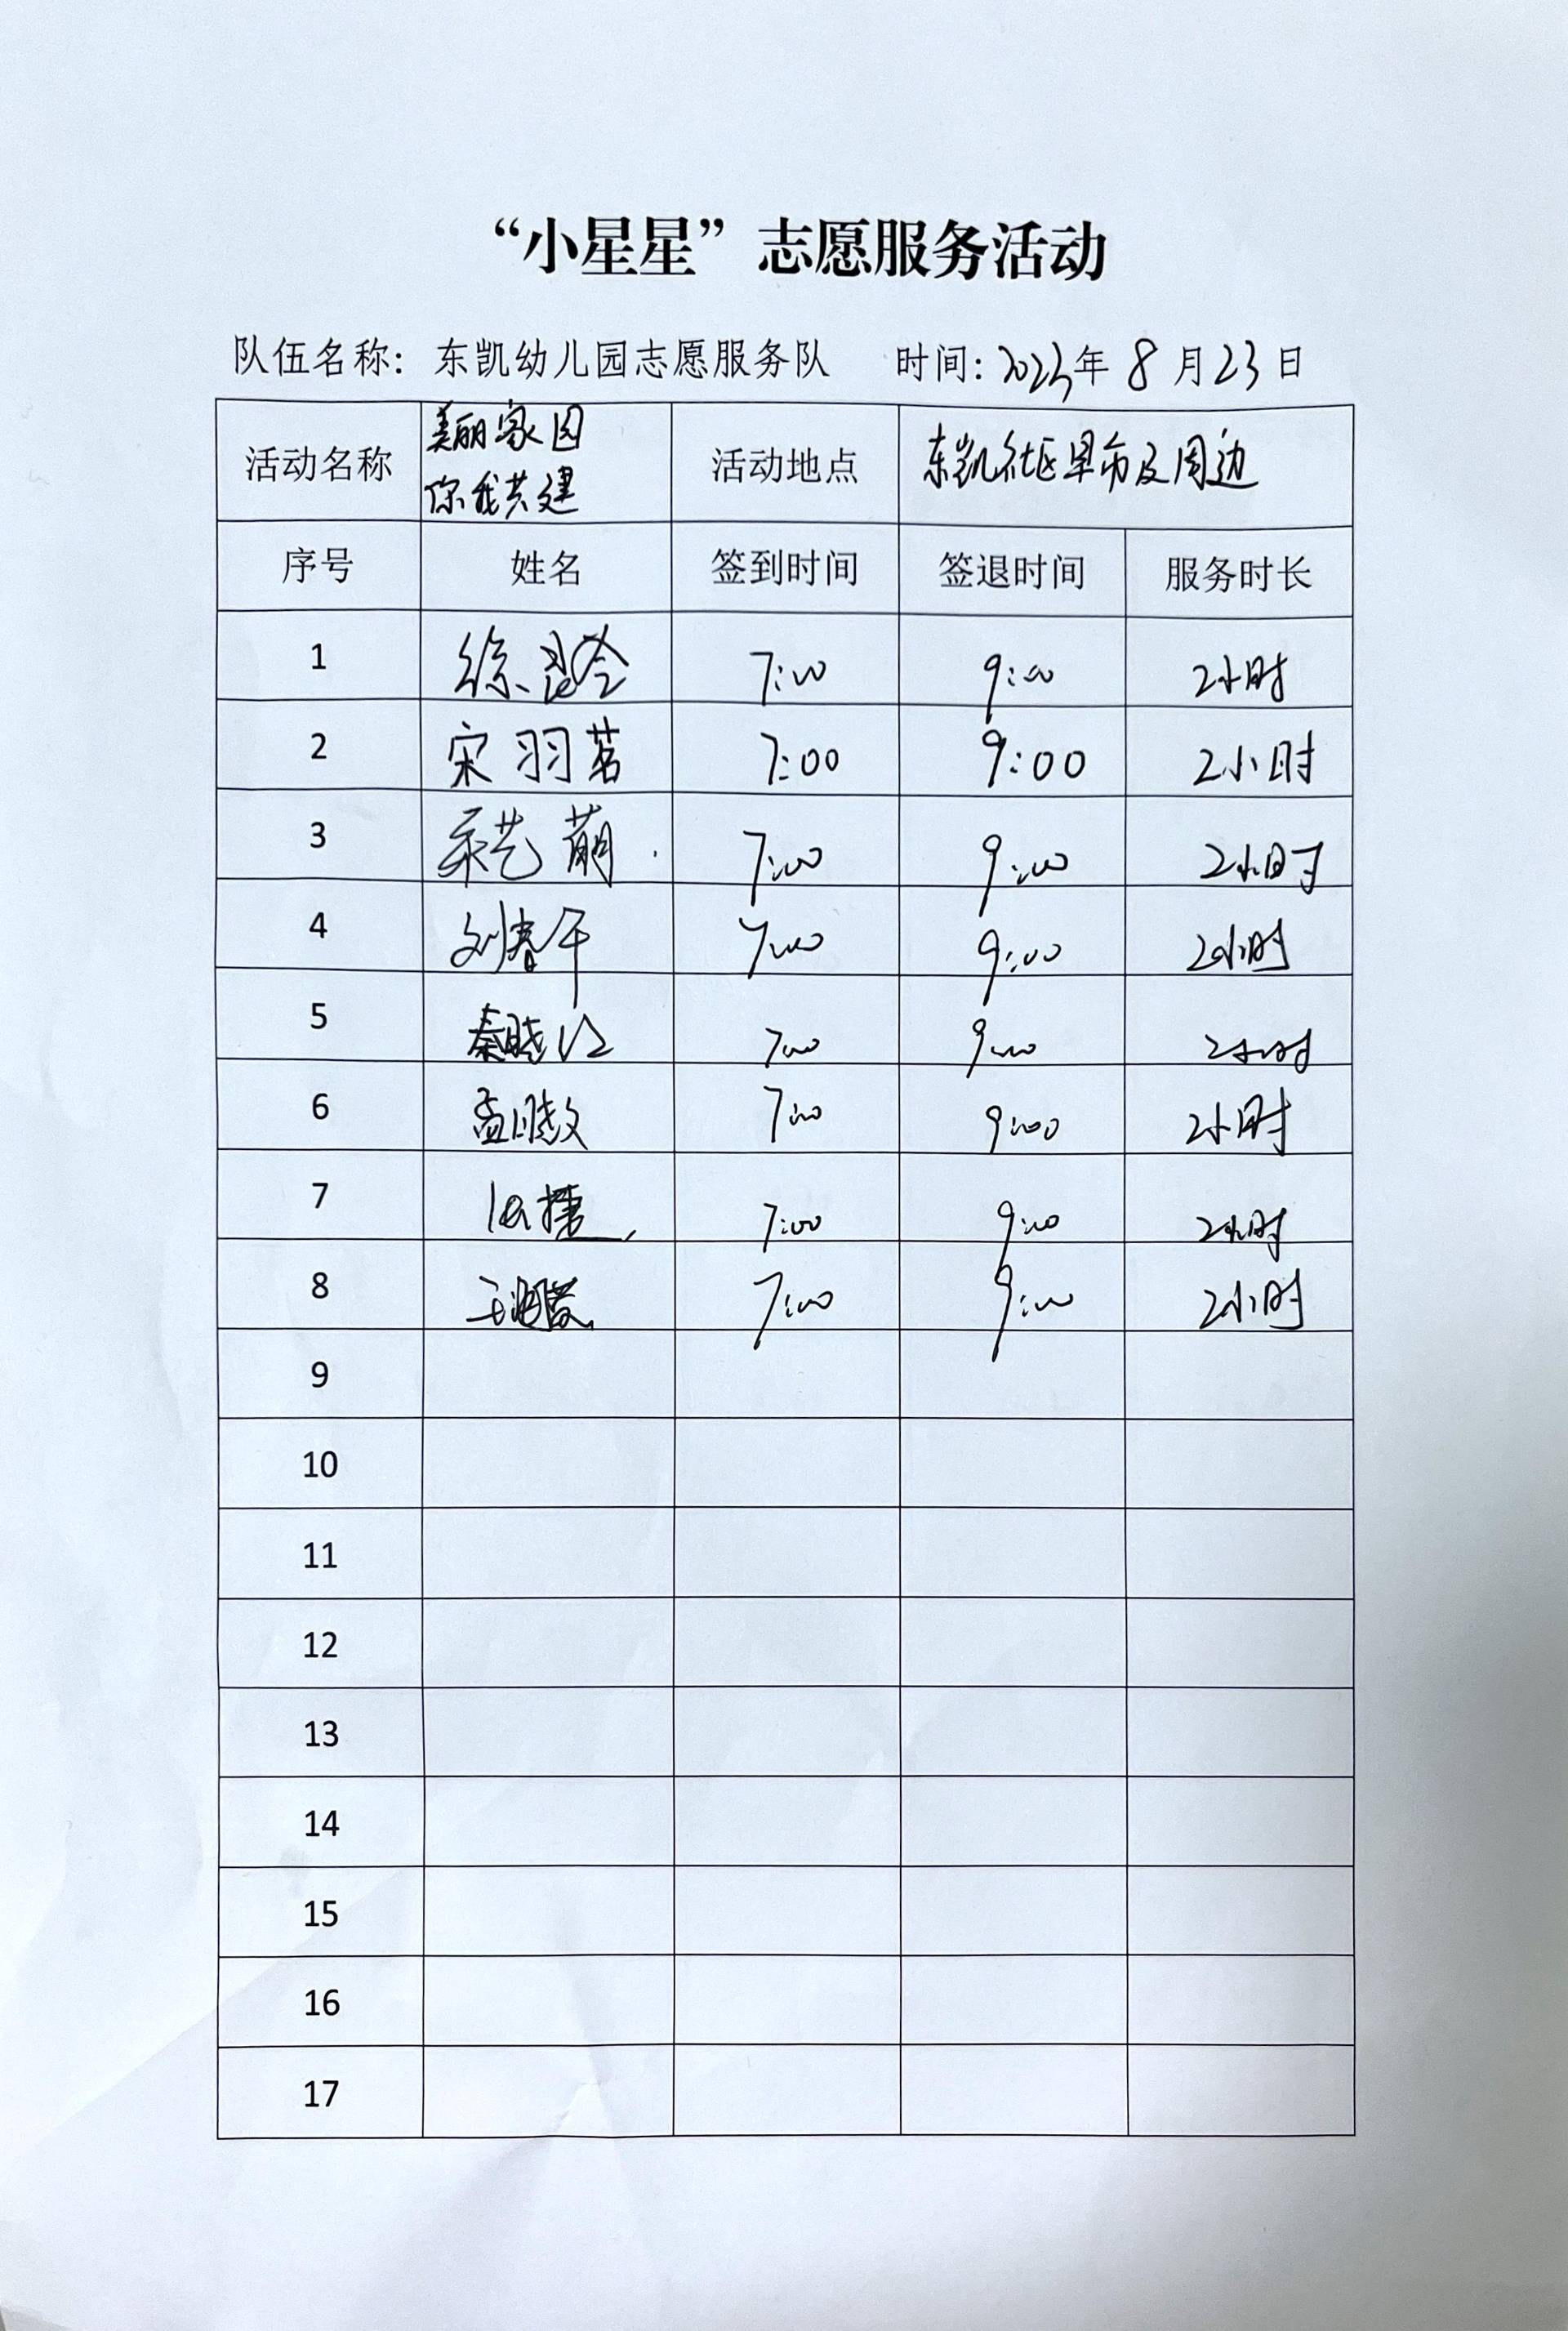 “小星星”志愿服务活动
队伍名称: 东凯幼儿园志愿服务队 时间: 2023年 8 月 23 日
活动名称 美丽家园 你我共建 活动地点 东凯社区早市及周边
序号 姓名 签到时间 签退时间 服务时长
1 徐 7:00 9:00 2小时
2 宋羽茗 7:00 9:00 2小时
3 艺萌 7:00 9:00 2小时
4 刘春午 7:00 9:00 2小时
5 秦晓红 7:00 9:00 2小时
6 孟晓文 7:00 9:00 2小时
7 7:00 9:00 2小时
8 王 7:00 9:00 2小时
9
10
11
12
13
14
15
16
17